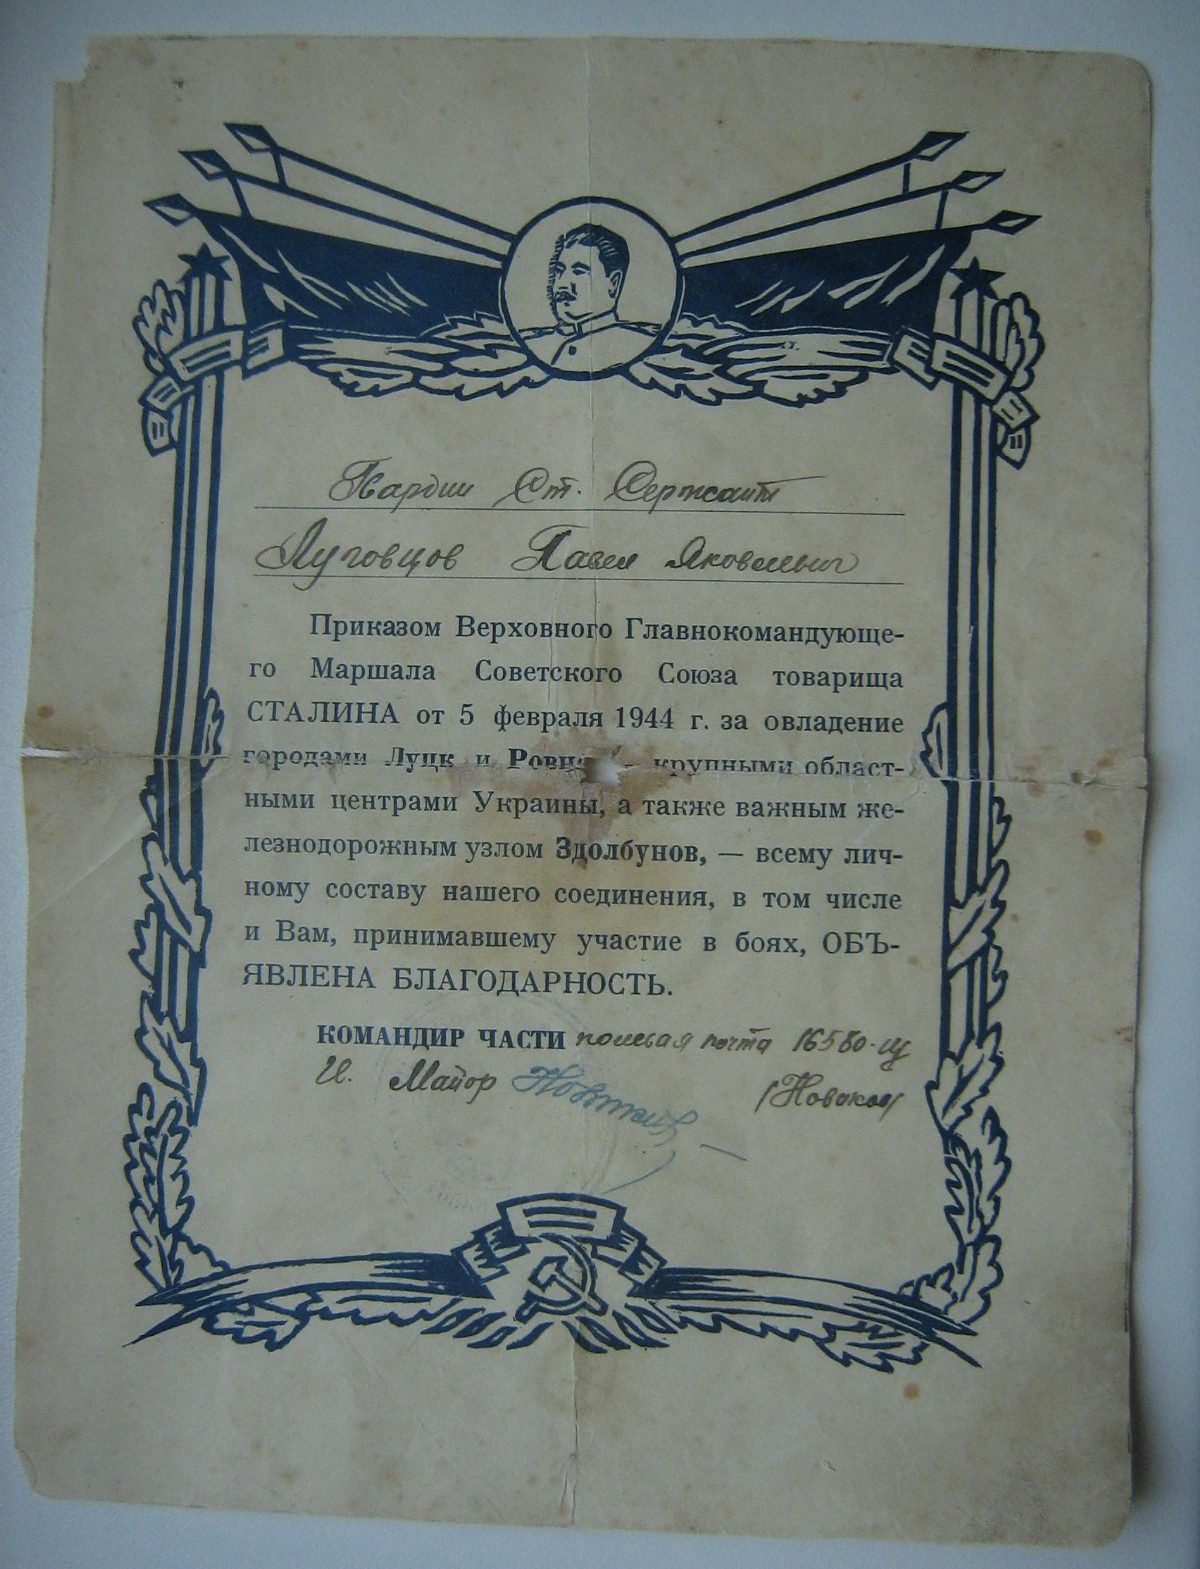 Гвардии Ст. Сержант
Луговцов Павел Яковлевич
Приказом Верховного Главнокомандующе-
го Маршала Советского Союза товарища
СТАЛИНА от 5 февраля 1944 г. за овладение
городами Луцк и Ровно — крупными област-
ными центрами Украины, а также важным же-
лезнодорожным узлом Здолбунов, — всему лич-
ному составу нашего соединения, в том числе
и Вам, принимавшему участие в боях, ОБЪ-
ЯВЛЕНА БЛАГОДАРНОСТЬ.
КОМАНДИР ЧАСТИ полевая почта 16580-Щ
Майор